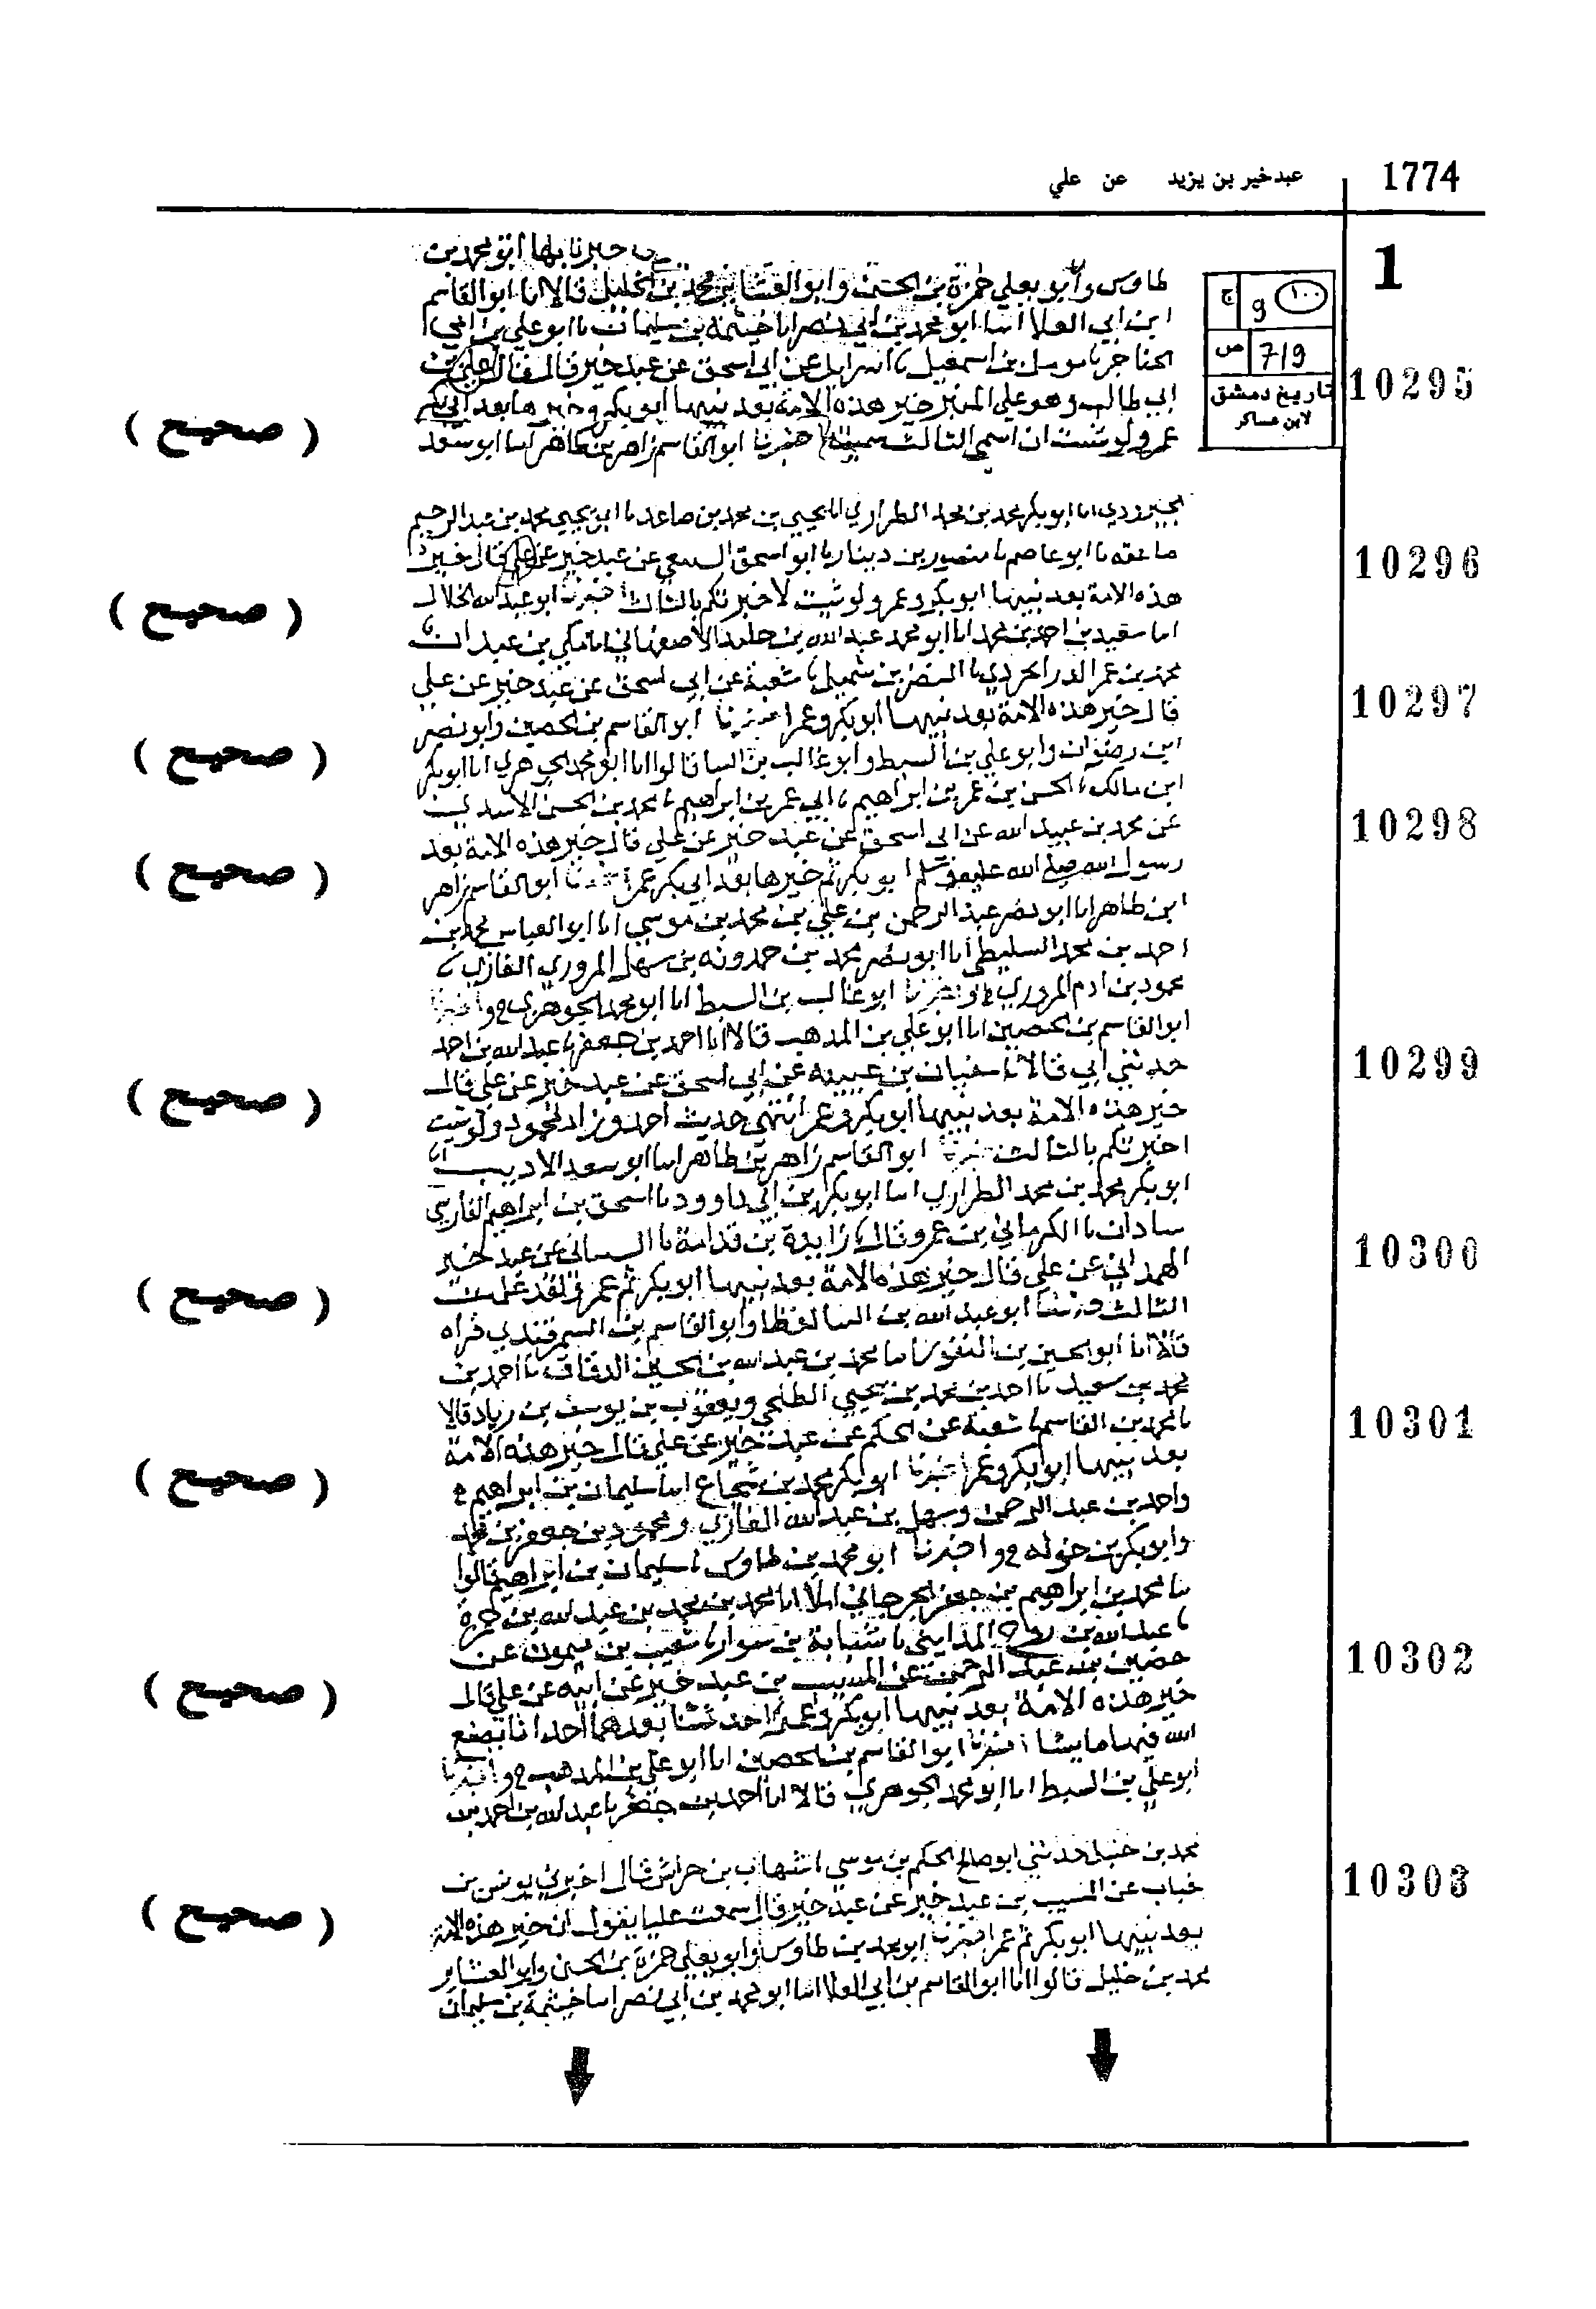 1774
عبدخير بن يزيد عن علي
1
ج 9 ١٠٠
ص 719
تاريخ دمشق
لابن عساكر
اخبرنا بها ابو محمد بن
طاوس وابو يعلي حمزة بن الحسن وابو العشاير محمد بن الخليل قالا انا ابو القاسم
ابن ابي العلا انا ابو محمد بن ابي نصر انا خيثمة بن سليمان نا ابو علي بن ابي
الحناجر نا موسل بن اسمعيل نا اسرايل عن ابي اسحق عن عبد خير قال قال علي بن
10295
ابي طالب وهو علي المنبر خير هذه الامة بعد نبيها ابو بكر وخيرها بعد ابي بكر
( صحيح )
عمر ولو شئت ان اسمي الثالث سميته اخبرنا ابو القاسم زاهر بن طاهر انا ابو سعد
الجنزرودي انا ابو بكر محمد بن محمد الطرازي انا يحيي بن محمد بن صاعد نا ابو يحيي محمد بن عبد الرحيم
صاعقه نا ابو عاصم نا منصور بن دينار نا ابو اسحق السبيعي عن عبد خير عن علي قال خير
10296
هذه الامة بعد نبيها ابو بكر وعمر ولو شيت لاخبرتكم بالثالث اخبرنا ابو عبد الله الخلال
( صحيح )
انا سعيد بن احمد بن محمد انا ابو محمد عبد الله بن حامد الاصفهاني انا مكي بن عبدان نا
محمد بن عمر الدرابجردي نا النضر بن شميل نا شعبة عن ابي اسحق عن عبد خير عن علي
10297
قال خير هذه الامة بعد نبيها ابو بكر وعمر اخبرنا ابو القاسم بن الحصين وابو نصر
( صحيح )
ابن رضوان وابو علي بن السبط وابو غالب بن البنا قالوا انا ابو محمد الجوهري انا ابو بكر
ابن مالك نا الحسن بن عمر بن ابراهيم نا ابي عمر بن ابراهيم نا محمد بن الحسن الاسدي
عن محمد بن عبيد الله عن ابي اسحق عن عبد خير عن علي قال خير هذه الامة بعد
10298
رسول الله صلى الله عليه وسلم ابو بكر ثم خيرها بعد ابي بكر عمر اخبرنا ابو القاسم زاهر
( صحيح )
ابن طاهر انا ابو نصر عبد الرحمن بن علي بن محمد بن موسي انا ابو العباس محمد بن
احمد بن محمد السليطي انا ابو نصر محمد بن حمدونه بن سهل المروزي الغازي نا
محمود بن ادم المروزي ح واخبرنا ابو غالب بن السبط انا ابو محمد الجوهري ح واخبرنا
ابو القاسم بن الحصين انا ابو علي بن المذهب قالا انا احمد بن جعفر نا عبد الله بن احمد
حدثني ابي قالا نا سفيان بن عيينه عن ابي اسحق عن عبد خير عن علي قال
10299
خير هذه الامة بعد نبيها ابو بكر وعمر انتهي حديث احمد وزاد محمود ولو شيت
( صحيح )
اخبرتكم بالثالث اخبرنا ابو القاسم زاهر بن طاهر انا ابو سعد الاديب انا
ابو بكر محمد بن محمد الطرازي انا ابو بكر بن ابي داوود نا اسحق بن ابراهيم الفارسي
سادان نا الكرماني بن عمرو قال نا زايدة بن قدامة نا عن عبد خير
الهمداني عن علي قال خير هذه الامة بعد نبيها ابو بكر ثم عمر ولقد علمت
10300
الثالث اخبرنا ابو عبد الله بن البنا لفظا وابو القاسم بن السمرقندي قراه
( صحيح )
قالا انا ابو الحسين بن النقور انا محمد بن عبد الله بن الحسين الدقاق نا احمد بن
محمد بن سعيد نا احمد بن محمد بن يحيي الطلحي ويعقوب بن يوسف بن زياد قالا
نا محمد بن القاسم نا شعبة عن الحكم عن عبد خير عن علي قال خير هذه الامة
10301
بعد نبيها ابو بكر وعمر اخبرنا ابو بكر محمد بن شجاع انا سليمان بن ابراهيم ح
( صحيح )
واحمد بن عبد الرحمن وسهل بن عبد الله الغازي ومحمود بن جعفر بن محمد
وابو بكر بن خوله ح واخبرنا ابو محمد بن طاوس نا سليمان بن ابراهيم قالوا
نا محمد بن ابراهيم بن جعفر الجرجاني املا انا محمد بن محمد بن عبد الله بن حمزة
نا عبد الله بن روح المدايني نا شبابة بن سوار نا شعيب بن ميمون عن
حصين بن عبد الرحمن عن المسيب بن عبد خير عن ابيه عن علي قال
10302
خير هذه الامة بعد نبيها ابو بكر وعمر احدثنا بعدهما احداثا يصنع
( صحيح )
الله فيها ما يشا اخبرنا ابو القاسم بن الحصين انا ابو علي بن المذهب ح واخبرنا
ابو علي بن السبط انا ابو محمد الجوهري قالا انا احمد بن جعفر نا عبد الله بن احمد بن
محمد بن حنبل حدثني ابو صالح الحكم بن موسي نا شهاب بن خراش قال اخبرني يونس بن
خباب عن المسيب بن عبد خير عن عبد خير قال سمعت عليا يقول ان خير هذه الامة
10303
بعد نبيها ابو بكر ثم عمر اخبرنا ابو محمد بن طاوس وابو يعلي حمزة بن الحسن وابو العشاير
( صحيح )
محمد بن خليل قالوا انا ابو القاسم بن ابي العلا انا ابو محمد بن ابي نصر انا خيثمة بن سليمان